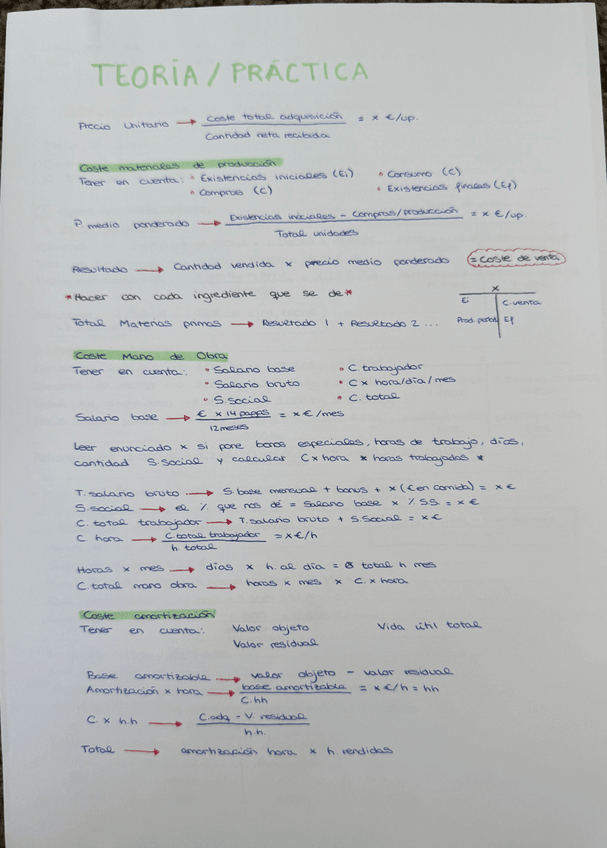 TEORÍA / PRÁCTICA
Precio Unitario → Coste total adquisición / Cantidad neta recibida = x €/up.
Coste materiales de producción
Tener en cuenta: • Existencias iniciales (Ei) • Consumo (C)
• Compras (C) • Existencias finales (Ef)
P medio ponderado → Existencias iniciales - Compras/producción / Total unidades = x €/up.
Resultado → Cantidad vendida x precio medio ponderado = coste de venta
*Hacer con cada ingrediente que se de*
X
Ei C.venta
Prod. period Ef
Total Materias primas → Resultado 1 + Resultado 2 ...
Coste Mano de Obra
Tener en cuenta: • Salario base • C. trabajador
• Salario bruto • C x hora/día/mes
• S.social • C. total
Salario base → € x 14 pagas / 12 meses = x €/mes
Leer enunciado x si pone bonos especiales, horas de trabajo, días,
cantidad S.social y calcular C x hora * horas trabajadas *
T. salario bruto → S.base mensual + bonus + x (€ en comida) = x €
S.social → el % que nos dé = Salario base x % SS = x €
C. total trabajador → T. salario bruto + S.Social = x €
C hora → C total trabajador / h total = x €/h
Horas x mes → días x h. al día = total h mes
C. total mano obra → horas x mes x C. x hora
Coste amortización
Tener en cuenta: Valor objeto Vida útil total
Valor residual
Base amortizable → valor objeto - valor residual
Amortización x hora → base amortizable / C.hh = x €/h = hh
C x h.h → C.adq - V. residual / h.h.
Total → amortización hora x h. rendidas